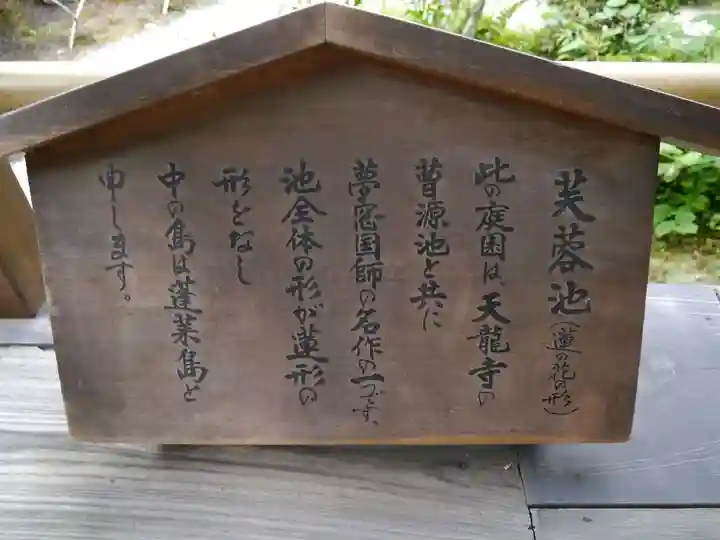 芙蓉池(蓮の花の形)
此の庭園は、天龍寺の
曹源池と共に
夢窓国師の名作の一つです、
池全体の形が蓮形の
形をなし
中の島は蓬莱島と
申します。